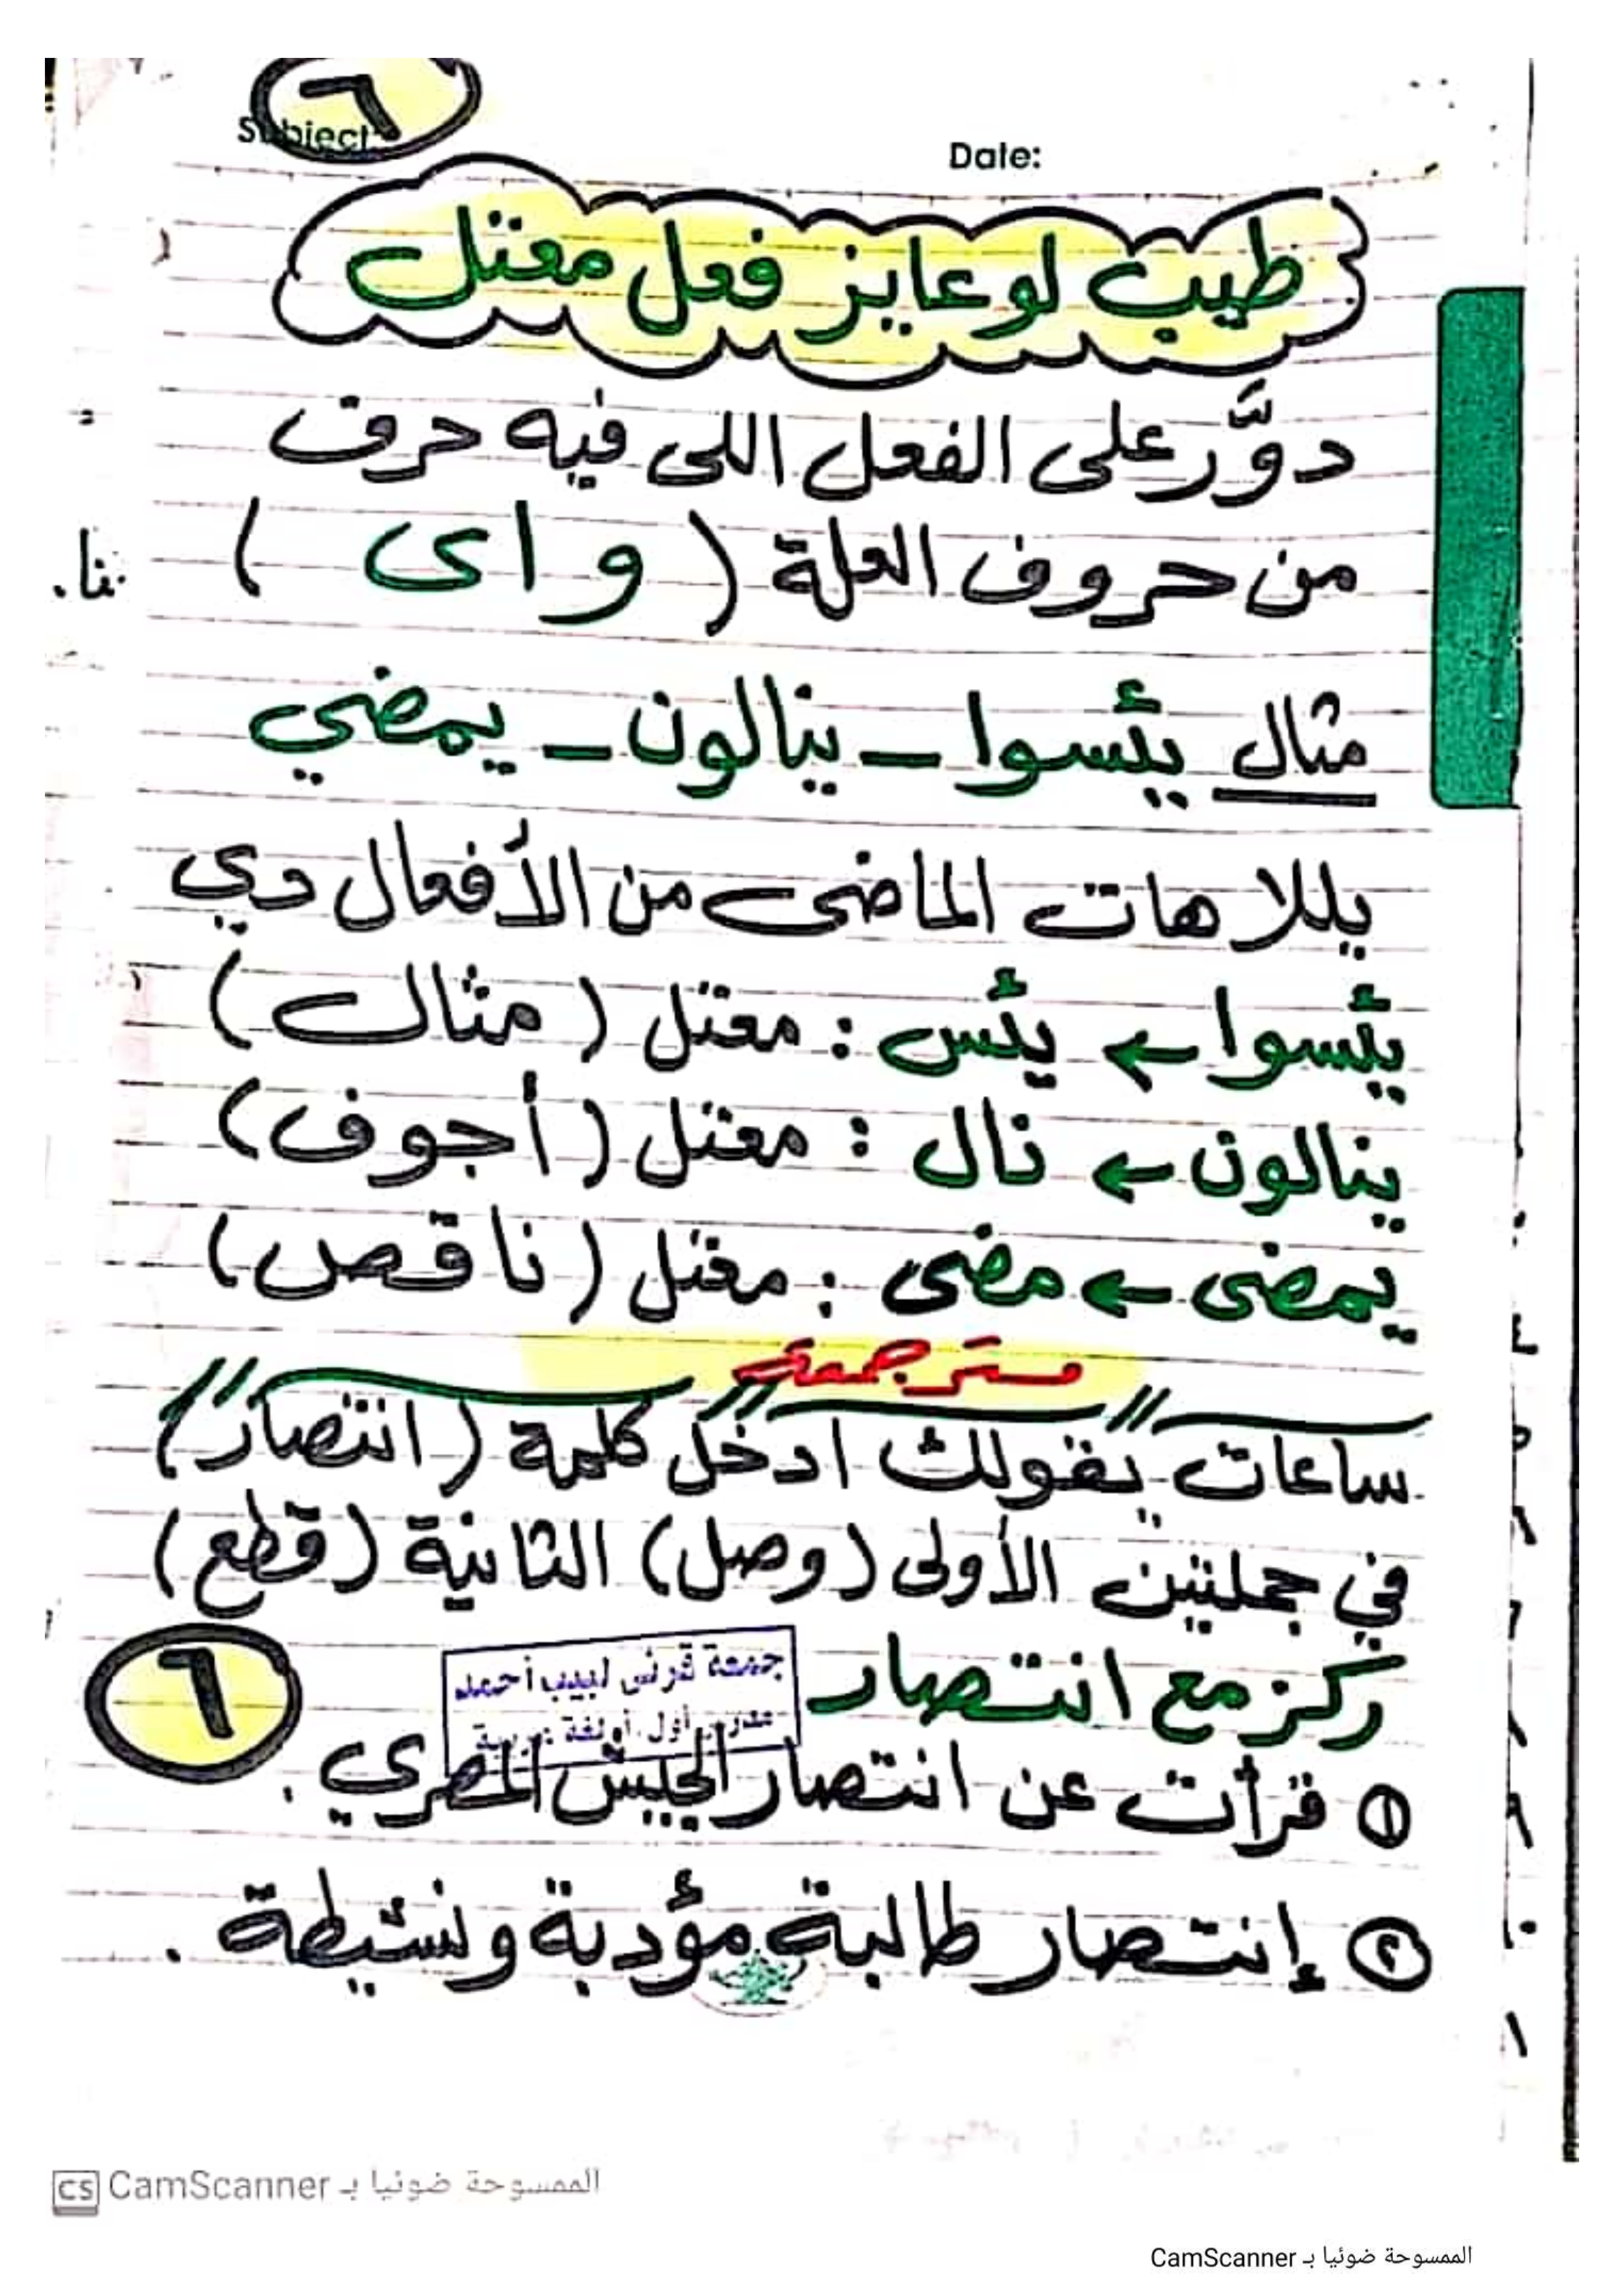 ٦
Subject:
Date:
طيب لو عايز فعل معتل
دوَّر على الفعل اللى فيه حرف
من حروف العلة ( و ا ى )
مثال يئسوا - ينالون - يمضي
يللا هات الماضى من الأفعال دي
يئسوا ← يئس : معتل ( مثال )
ينالون ← نال : معتل ( أجوف )
يمضى ← مضى : معتل ( ناقص )
مترجمة
ساعات يقولك ادخل كلمة ( انتصار )
في جملتين الأولى ( وصل ) الثانية ( قطع )
ركز مع انتصار
جمعة قرنى لبيب أحمد
مدرس أول أ لغة عربية
٦
① قرأت عن انتصار الجيش المصري .
② إنتصار طالبة مؤدبة ونشيطة .
CS CamScanner الممسوحة ضوئيا بـ
الممسوحة ضوئيا بـ CamScanner